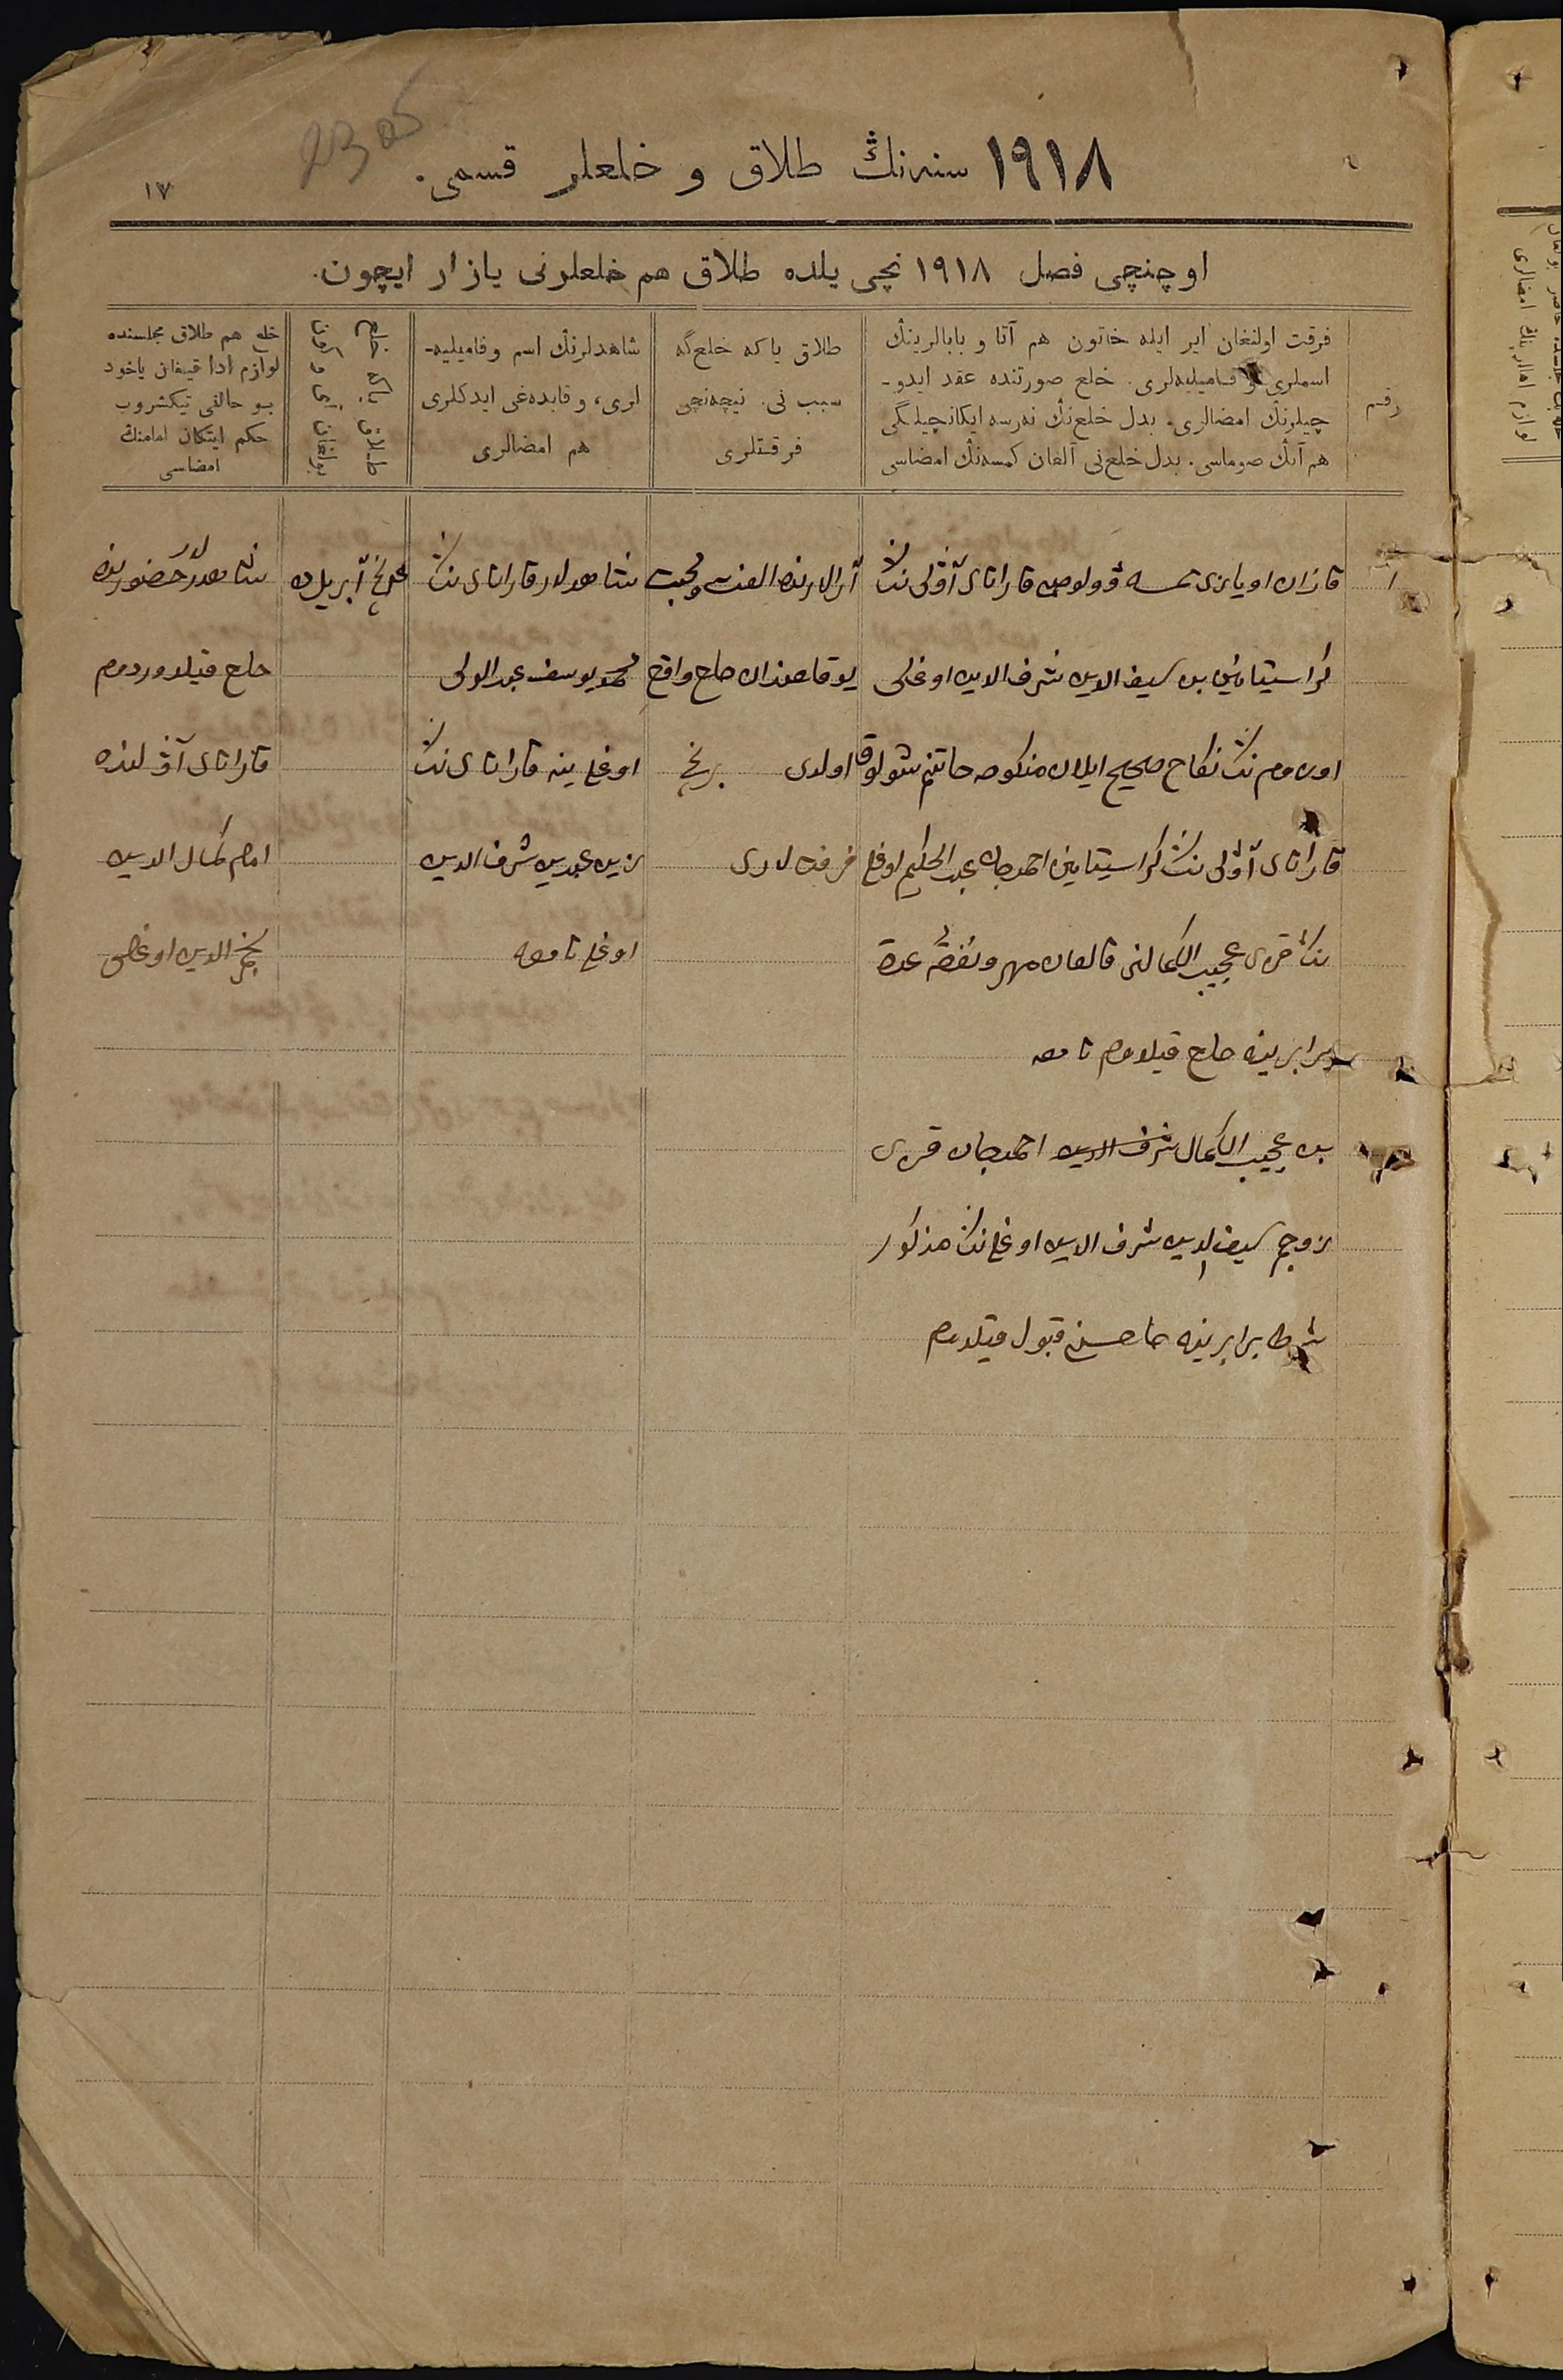 2305
١٩١٨ سنه‌نڭ طلاق و خلعلر قسمی.
١٧
اوچنچی فصل ١٩١٨ نچی یلده طلاق هم خلعلرنی یازار ایچون.
رقم
فرقت اولنغان ایر ایله خاتون هم آتا و بابالرینڭ
اسملری و فامیلیه‌لری. خلع صورتنده عقد ایدو-
چیلرنڭ امضالری. بدل خلع‌نڭ نه‌رسه ایکانچیلگی
هم آنڭ صوماسی. بدل خلع‌نی آلغان کمسه‌نڭ امضاسی
طلاق یا که خلع گه
سبب نی. نیچه‌نچی
فرقتلری
شاهدلرنڭ اسم و فامیلیه-
لری، و قایده‌غی ایدکلری
هم امضالری
طلاق یا که خلع
بولغان آی و کون
خلع هم طلاق مجلسنده
لوازم ادا قیلغان یاخود
بو حالنی تیکشروب
حکم ایتکان امامنڭ
امضاسی
١
قازان اویازی قارانای آولی ننڭ
کراستیانین بن سیف الدین شرف الدین اوغلی
اوزمنڭ نکاح صحیح ایلان منکوحه خاتنم شولوق
قارانای آولی ننڭ کراستیانین احمدجان عبد الحکیم اوغلی
ننڭ قزی عجیب الکمالنی قالغان مهر و نفقه عدة
برابرینه خلع قیلدم تامغه
بن عجیب الکمال شرف الدین احمدجان قزی
زوجم سیف الدین شرف الدین اوغلی ننڭ مذکور
شرط برابرینه خلعسین قبول قیلدم
آرالارنده الفت و محبت
یوقلقندان خلع واقع
اولدی برنچی
فرقتلاری
شاهدلار قارانای ننڭ
محمد یوسف عبد الولی
اوغلی ینه قارانای ننڭ
زین عبدین شرف الدین
اوغلی تامغه
آپریلده
شاهدلار حضورنده
خلع قیلدوردم
قارانای آولنده
امام کمال الدین
فخر الدین اوغلی